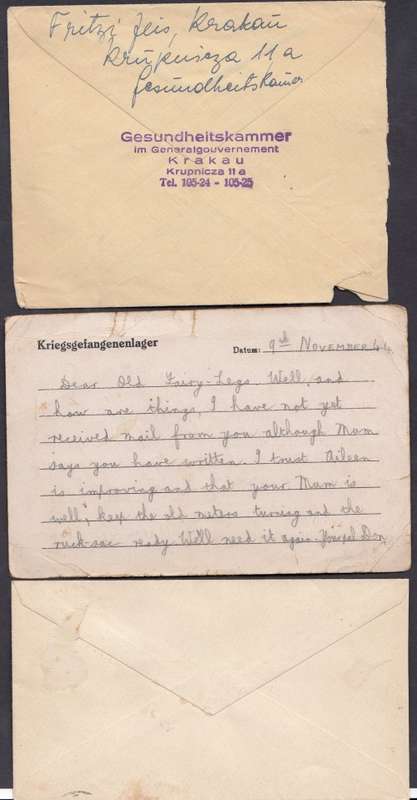 Fritzi Zeis, Krakau
Krupnicza 11a
Gesundheitskamer
Gesundheitskammer
im Generalgouvernement
Krakau
Krupnicza 11 a
Tel. 105-24 - 105-25
Kriegsgefangenenlager
Datum: 9th NOVEMBER 44.
Dear Old Fairy-Legs. Well, and
how are things, I have not yet
received mail from you although Mum
says you have written. I trust Aileen
is improving and that your Mum is
well, keep the old meters turning and the
ruck-sac ready We'll need it again. Don